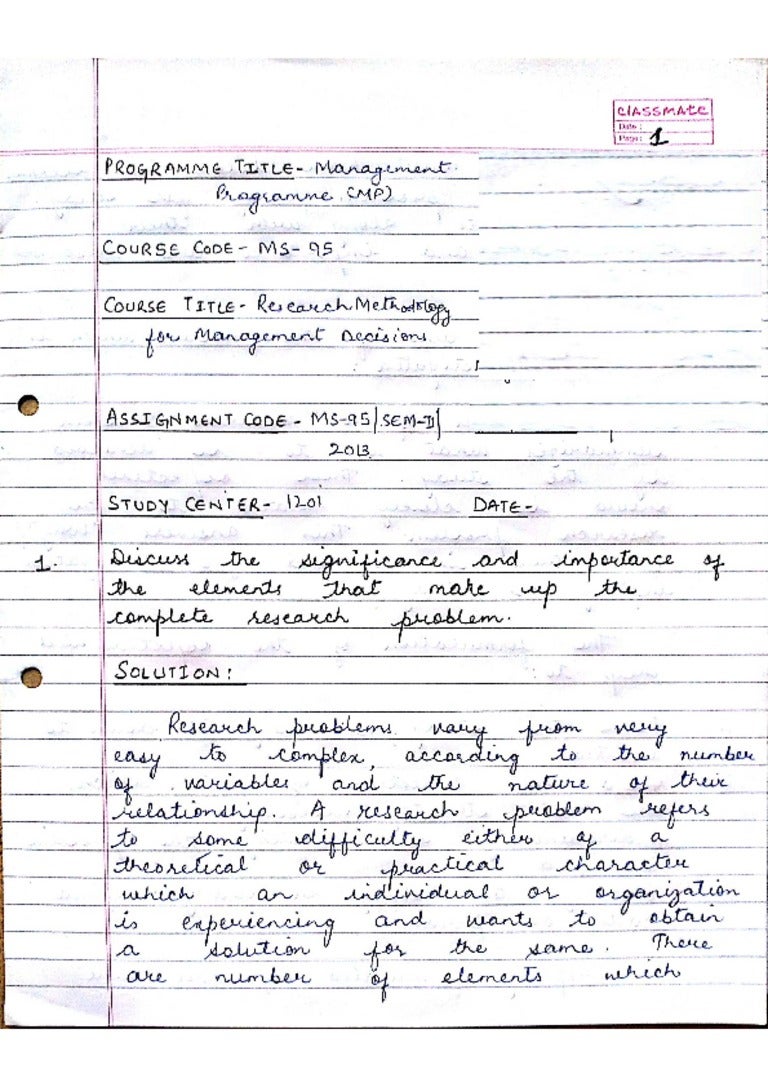 CLASSMATE
Date :
Page : 1
PROGRAMME TITLE - Management
Programme (MP)
COURSE CODE - MS-95
COURSE TITLE - Research Methodology
for Management Decisions
ASSIGNMENT CODE - MS-95/SEM-II/
2013
STUDY CENTER - 1201 DATE -
1. Discuss the significance and importance of
the elements that make up the
complete research problem.
SOLUTION :
Research problems vary from very
easy to complex, according to the number
of variables and the nature of their
relationship. A research problem refers
to some difficulty either of a
theoretical or practical character
which an individual or organization
is experiencing and wants to obtain
a solution for the same. There
are number of elements which